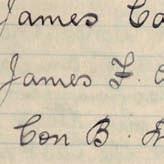 James Ca
James F.
Con B.